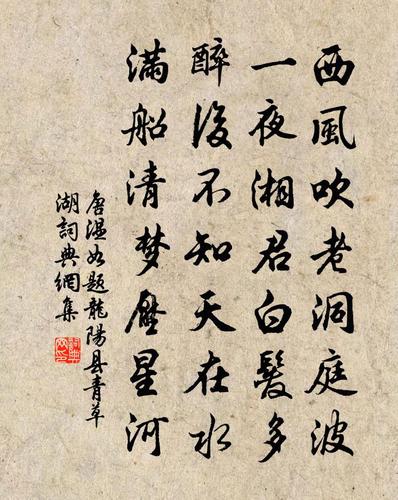 西風吹老洞庭波
一夜湘君白髮多
醉後不知天在水
滿船清梦壓星河
唐溫如題龍陽县青草
湖詞典網集